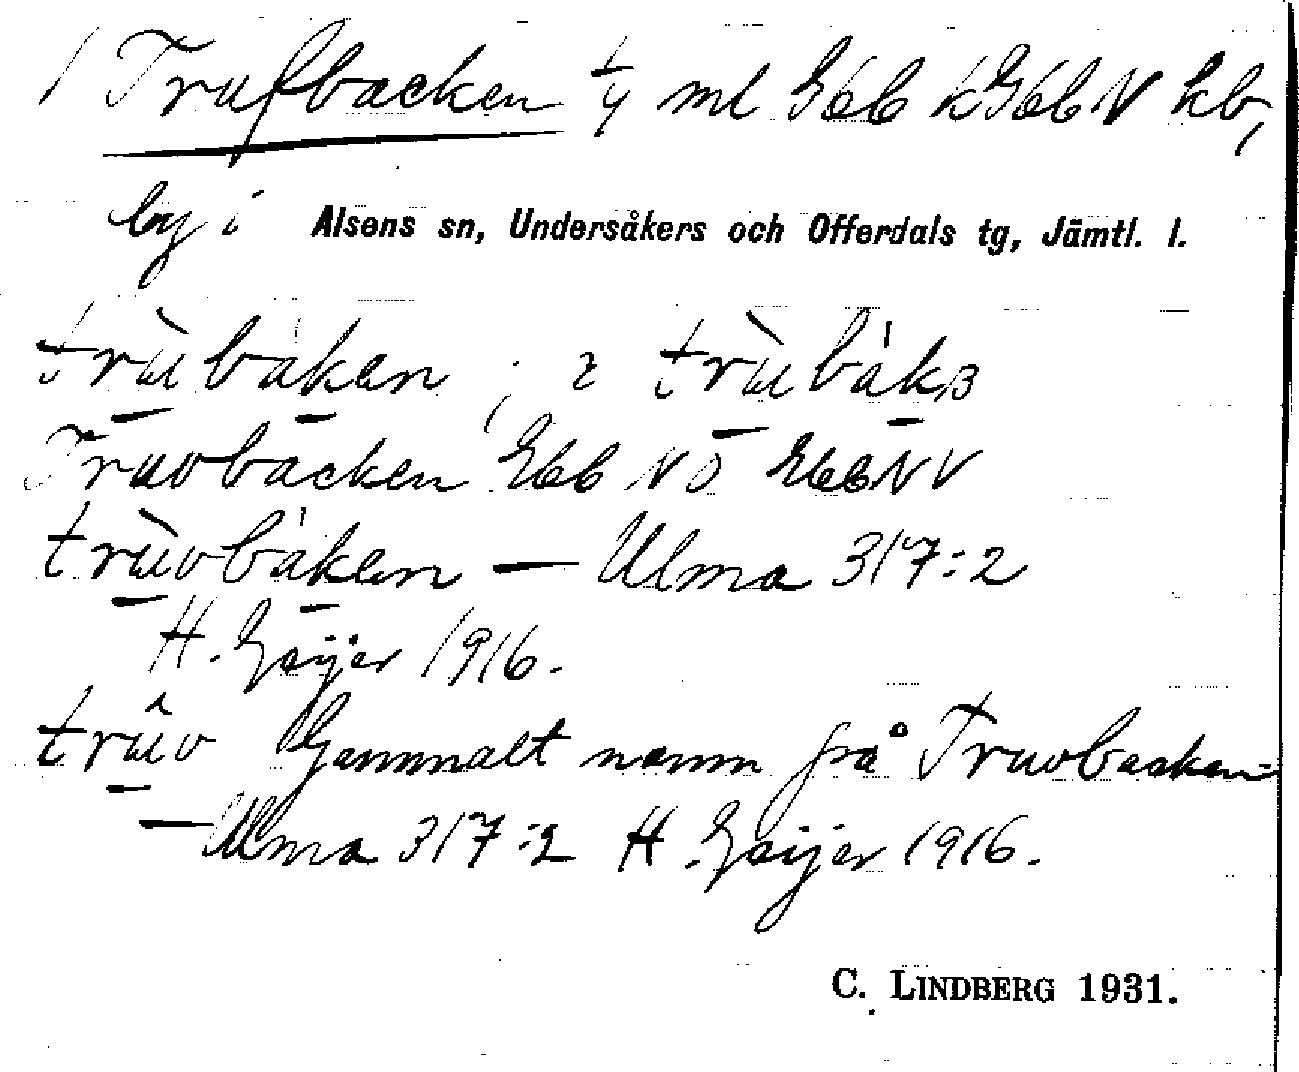 1 Trufbacken 1/4 ml Gbl kGbl N kb,
by i Alsens sn, Undersåkers och Offerdals tg, Jämtl. l.
trùbàken ; 2 trùbàk
Truvbacken Gbl NO Gbl NV
trùvbàken — Ulma 317:2
H. Geijer 1916.
trûv Gammalt namn på Truvbacken
— Ulma 317:2 H. Geijer 1916.
C. LINDBERG 1931.